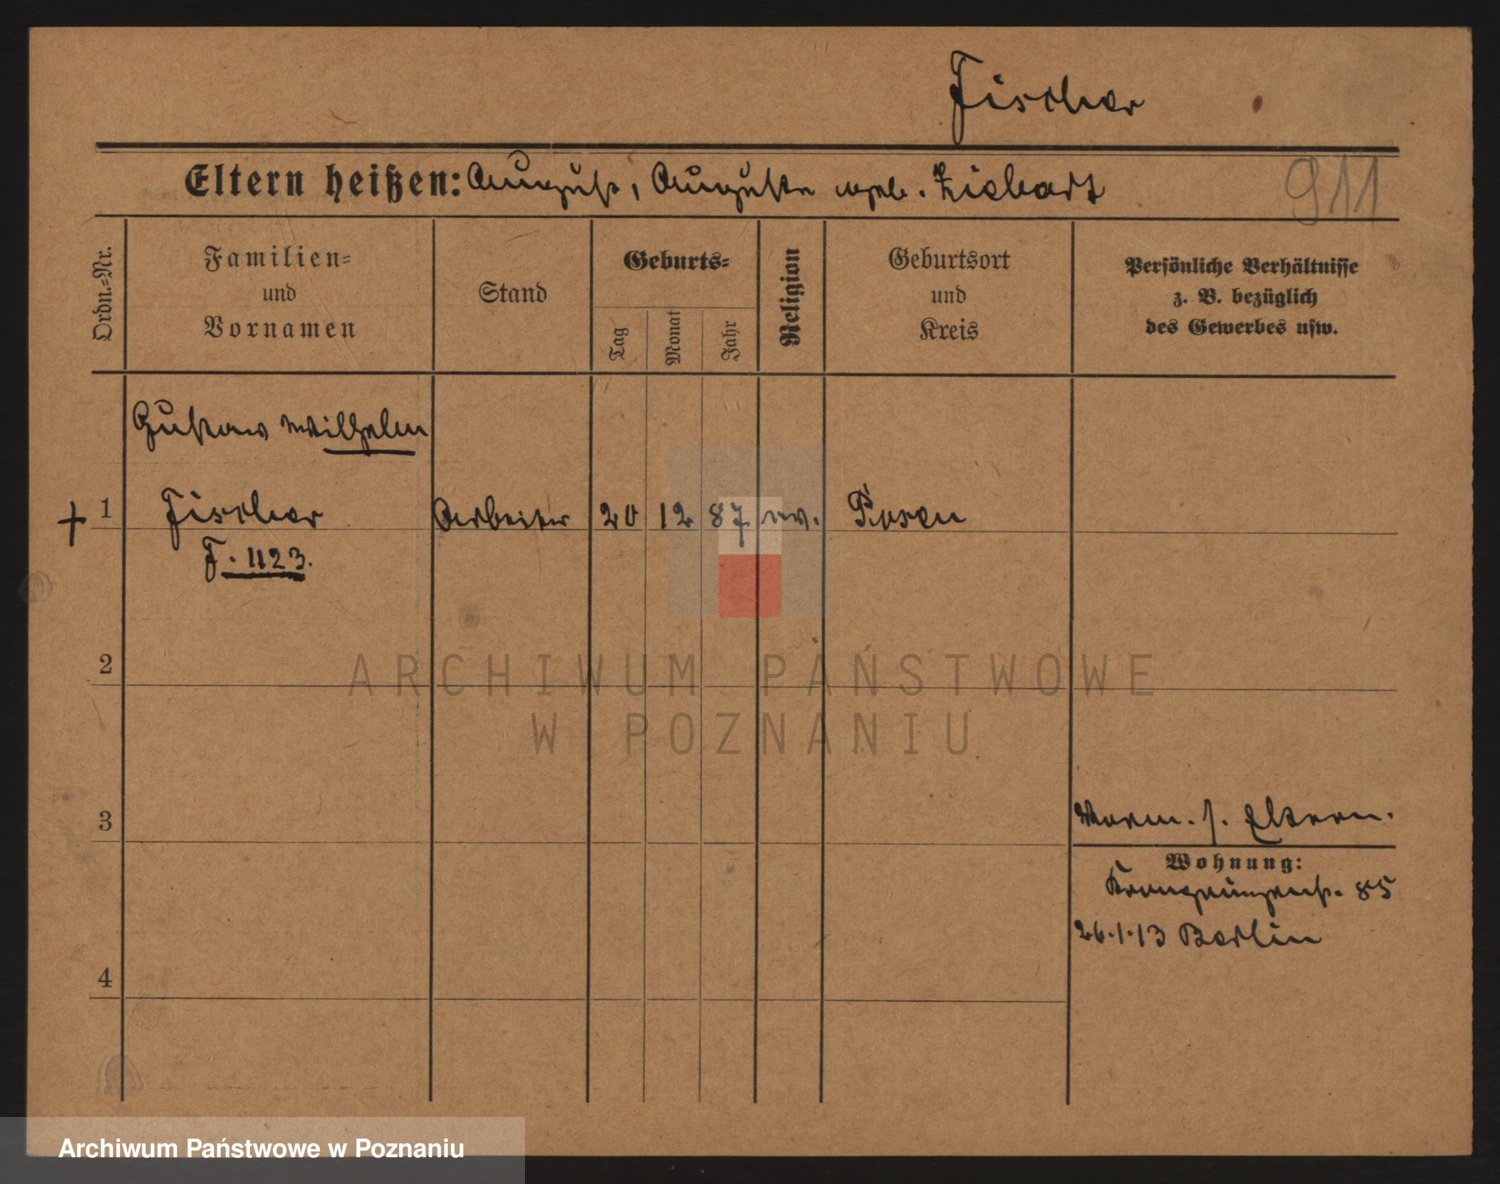 Fischer
Eltern heißen: August, Auguste geb. Ziebart
911
Ordn.-Nr.
Familien-
und
Vornamen
Stand
Geburts-
Tag
Monat
Jahr
Religion
Geburtsort
und
Kreis
Persönliche Verhältnisse
z. B. bezüglich
des Gewerbes usw.
Gustav Wilhelm
+ 1 Fischer Arbeiter 20 12 87 ev. Posen
F. 1123.
2
ARCHIWUM PAŃSTWOWE
W POZNANIU
3
Vorm. s. Eltern.
Wohnung:
Kronprinzenst. 85
26.1.13 Berlin
4
Archiwum Państwowe w Poznaniu